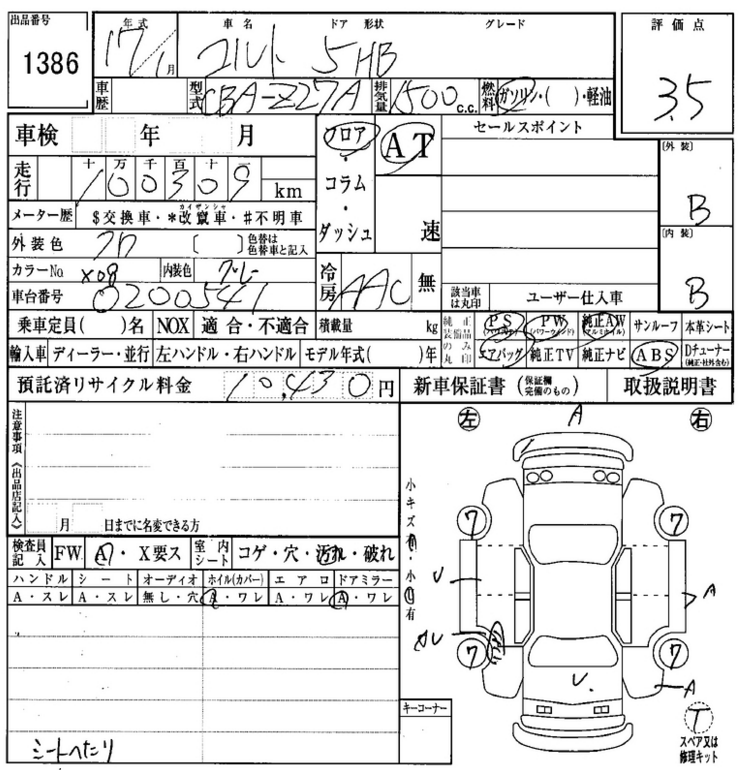 出品番号 年式 車名 ドア 形状 グレード 評価点
1386 17/1月 コルト 5HB 3.5
車歴 型式 CBA-Z27A 排気量 1500 c.c. 燃料 ガソリン・( )・軽油
車検 年 月 フロア・コラム・ダッシュ AT 速 セールスポイント
[外装] B
走行 十万千百十一 100309 km
メーター歴 $交換車・*改竄車・#不明車
カイザンシャ
外装色 [ ] 色替は色替車と記入
カラーNo X08 内装色 グレー 冷房 AAC 無 [内装] B
車台番号 0200541 該当車は丸印 ユーザー仕入車
乗車定員( )名 NOX 適合・不適合 積載量 kg 純正装備品のみ丸印 PS (パワーステ) PW (パワーウインド) 純正AW (アルミホイル) サンルーフ 本革シート
輸入車 ディーラー・並行 左ハンドル・右ハンドル モデル年式( )年 エアバッグ 純正TV 純正ナビ ABS Dチューナー (純正・社外含む)
預託済リサイクル料金 10,430円 新車保証書 (保証欄完備のもの) 取扱説明書
注意事項《出品店記入》
左 A 右
小キズ有・小凹有
月 日までに名変できる方
検査員記入 FW A・X要ス 室内シート コゲ・穴・汚れ・破れ
ハンドル シート オーディオ ホイル(カバー) エアロ ドアミラー
A・スレ A・スレ 無し・穴 A・ワレ A・ワレ A・ワレ
7 7
U A
AU
7 7
U. A
キーコーナー
T
スペア又は
修理キット
シートへたり